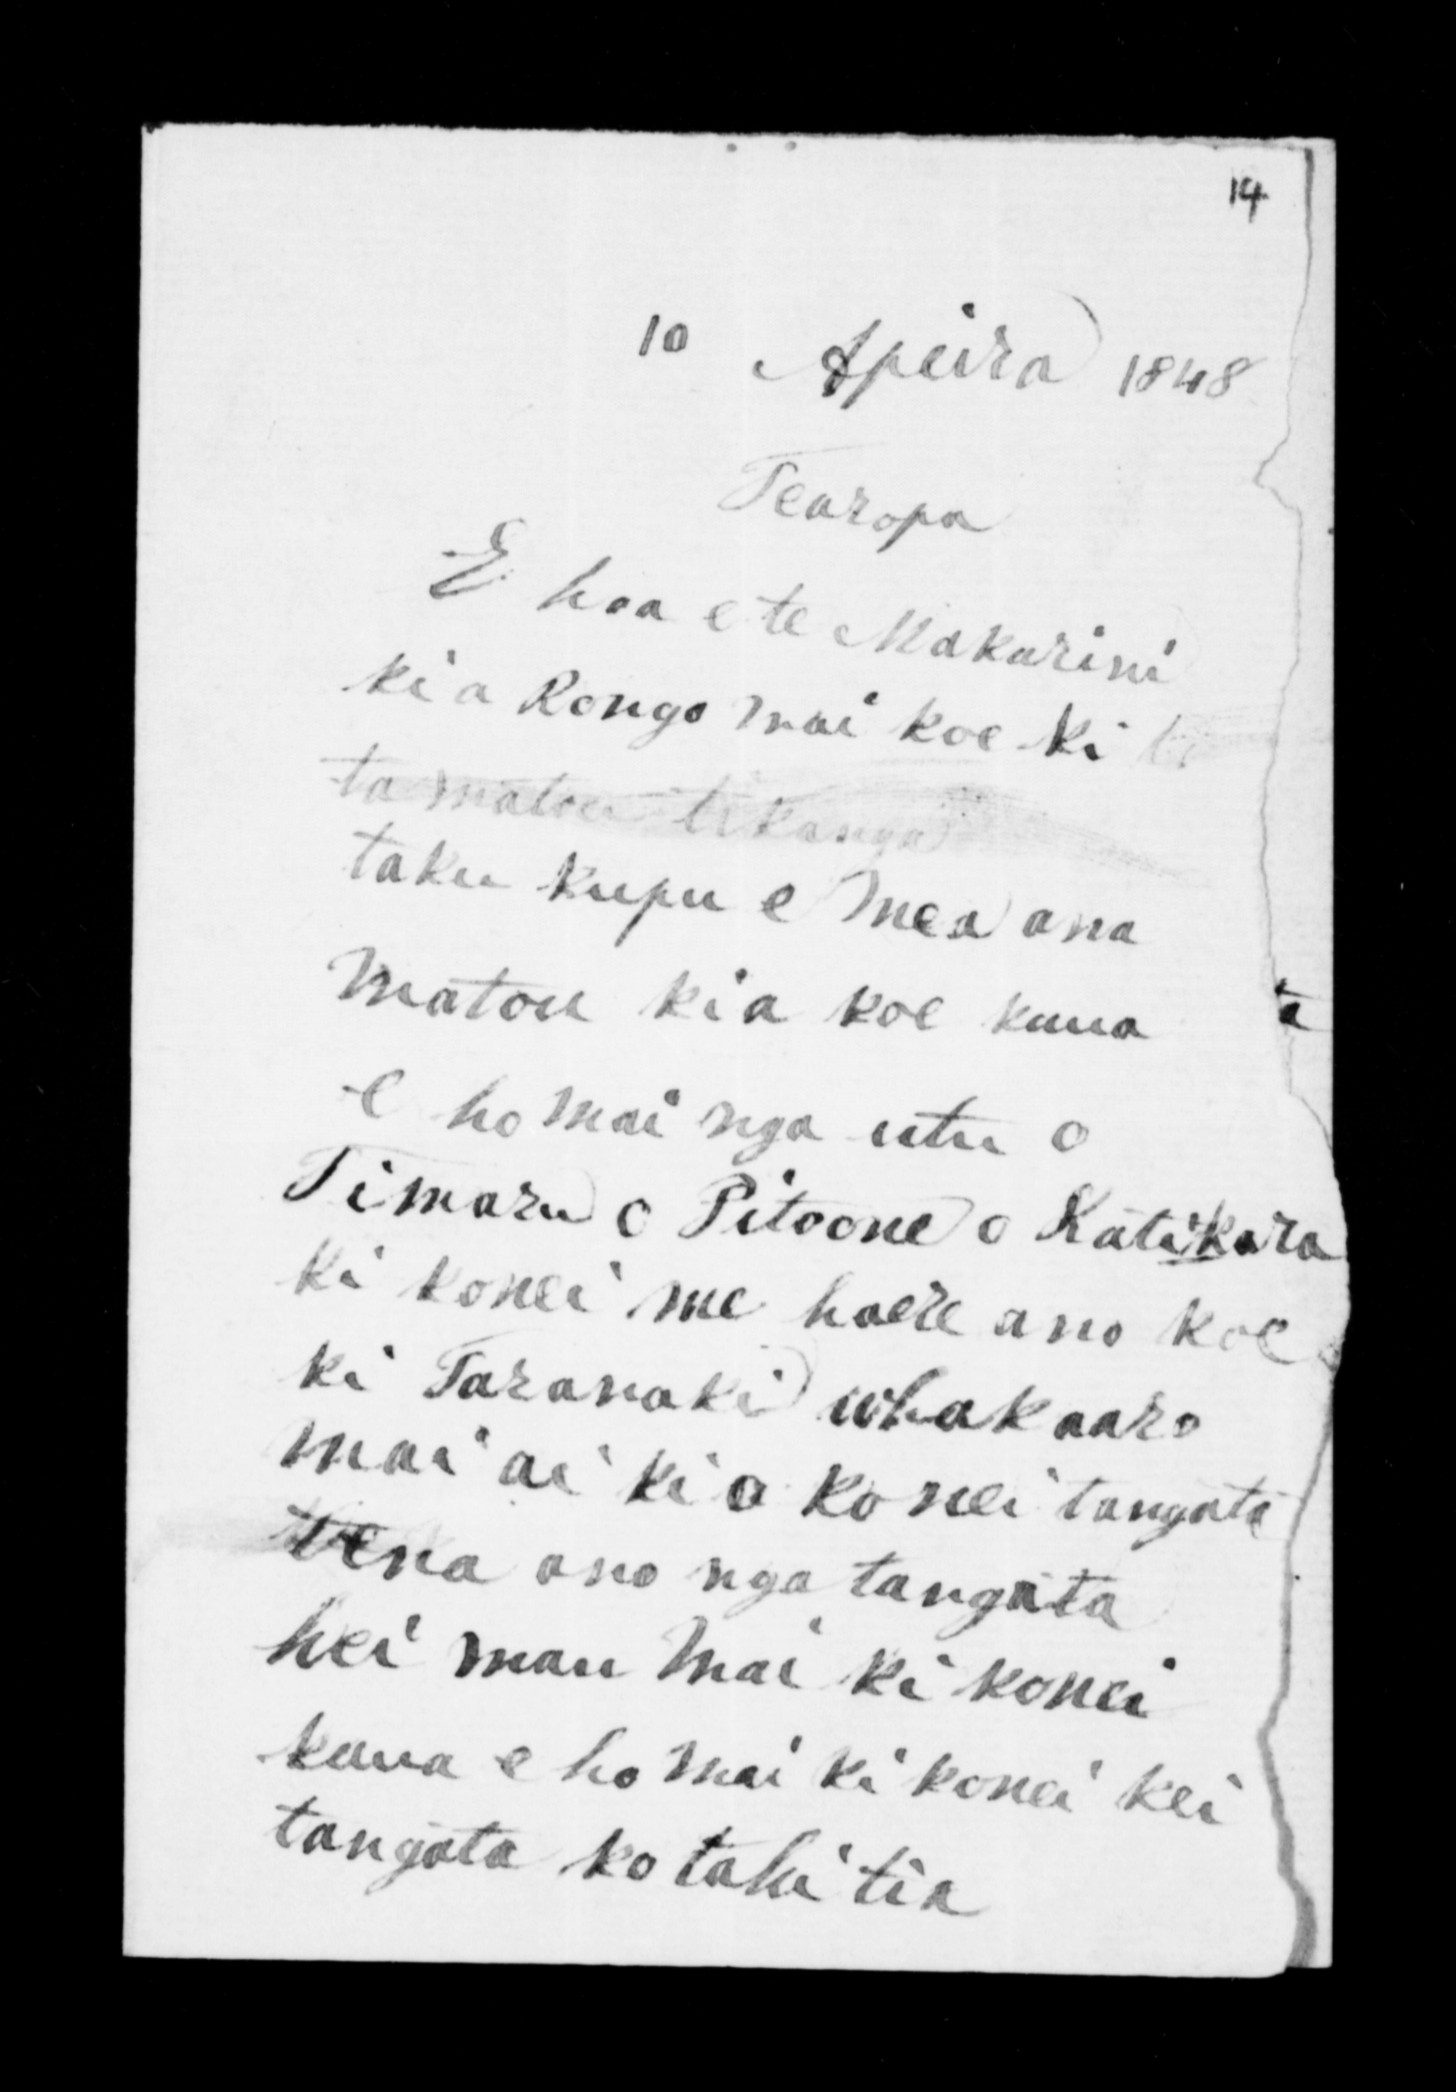 14
10 Apeira 1848
Tearopa
E hoa e te Makarini
kia Rongo mai koe ki
ta matou tikanga
taku kupu e mea ana
matou kia koe kaua
e ho mai nga utu o
Timaru o Pitoone o Katikara
ki konei me haere ano koe
ki Taranaki whakaaro
mai ai ki o konei tangata
tena ano nga tangata
hei mau mai ki konei
kaua e ho mai ki konei kei
tangata ko tahi tia